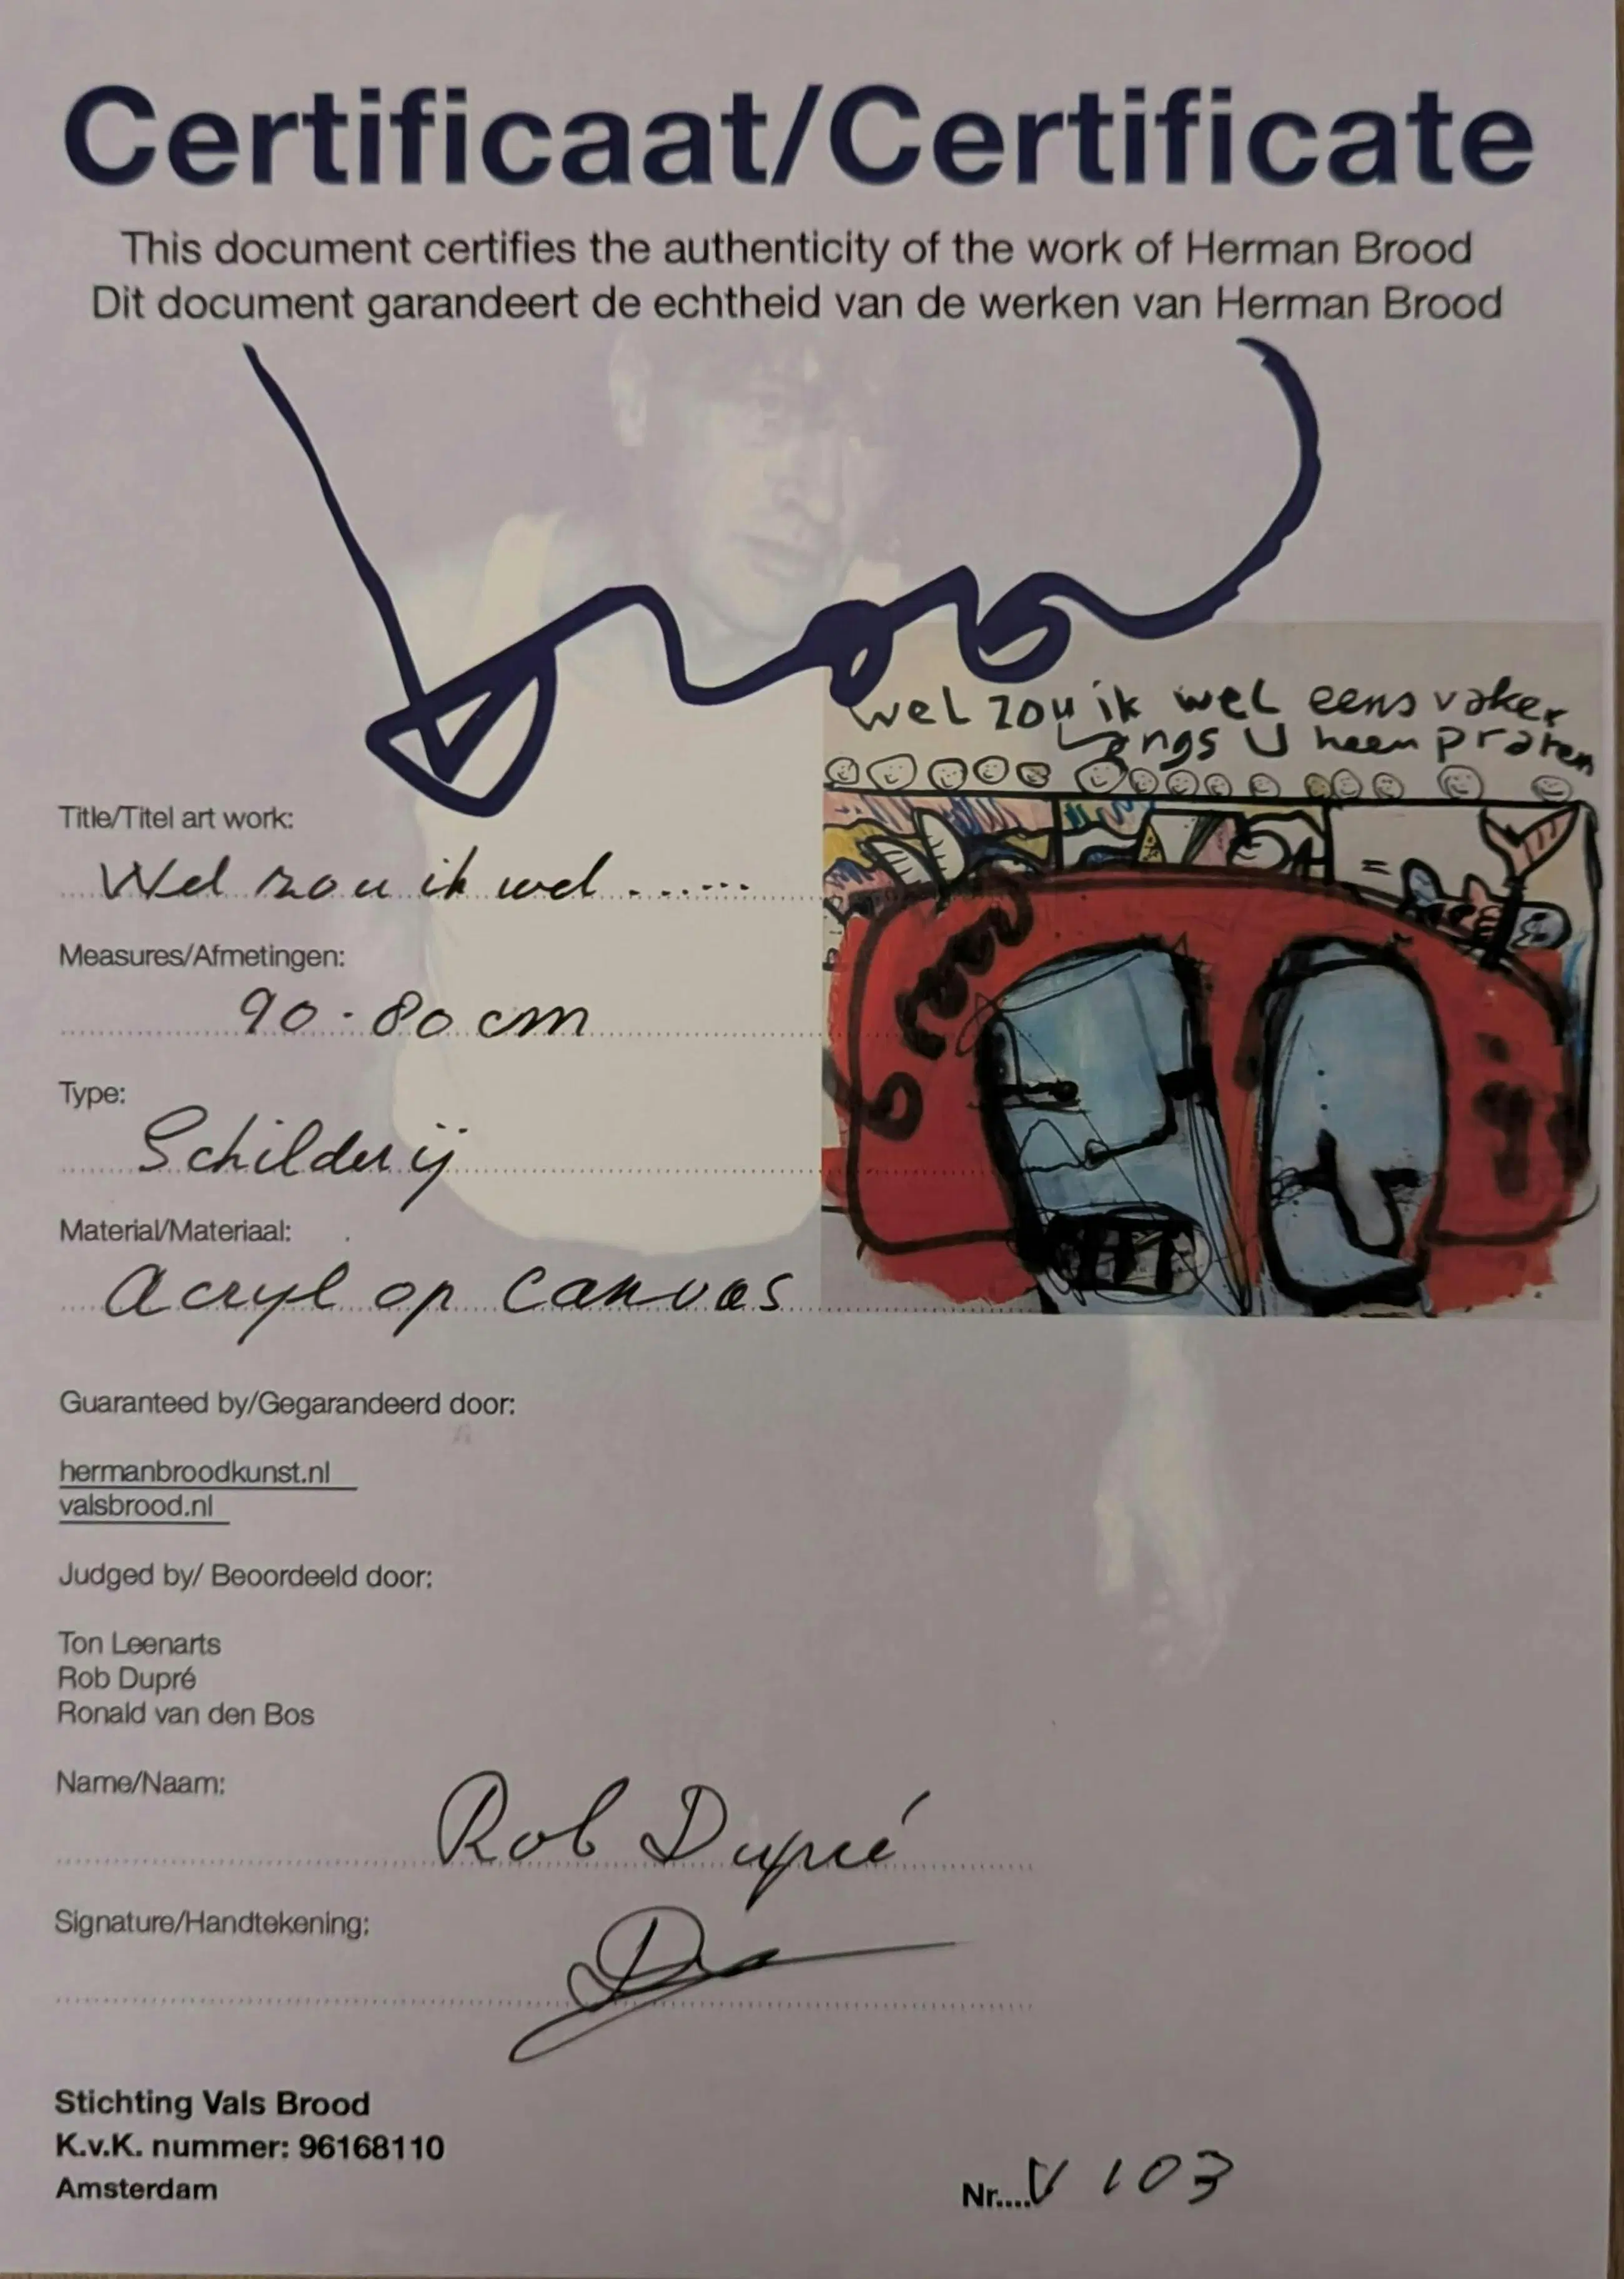 Certificaat/Certificate
This document certifies the authenticity of the work of Herman Brood
Dit document garandeert de echtheid van de werken van Herman Brood
Brood
wel zou ik wel eens vaker
Langs U heen praten
Brood
Title/Titel art work:
Wel zou ik wel .......
Measures/Afmetingen:
90 - 80 cm
Type:
Schilderij
Material/Materiaal:
Acryl op canvas
Guaranteed by/Gegarandeerd door:
hermanbroodkunst.nl
valsbrood.nl
Judged by/ Beoordeeld door:
Ton Leenarts
Rob Dupré
Ronald van den Bos
Name/Naam:
Rob Dupré
Signature/Handtekening:
Stichting Vals Brood
K.v.K. nummer: 96168110
Amsterdam
Nr....V 103